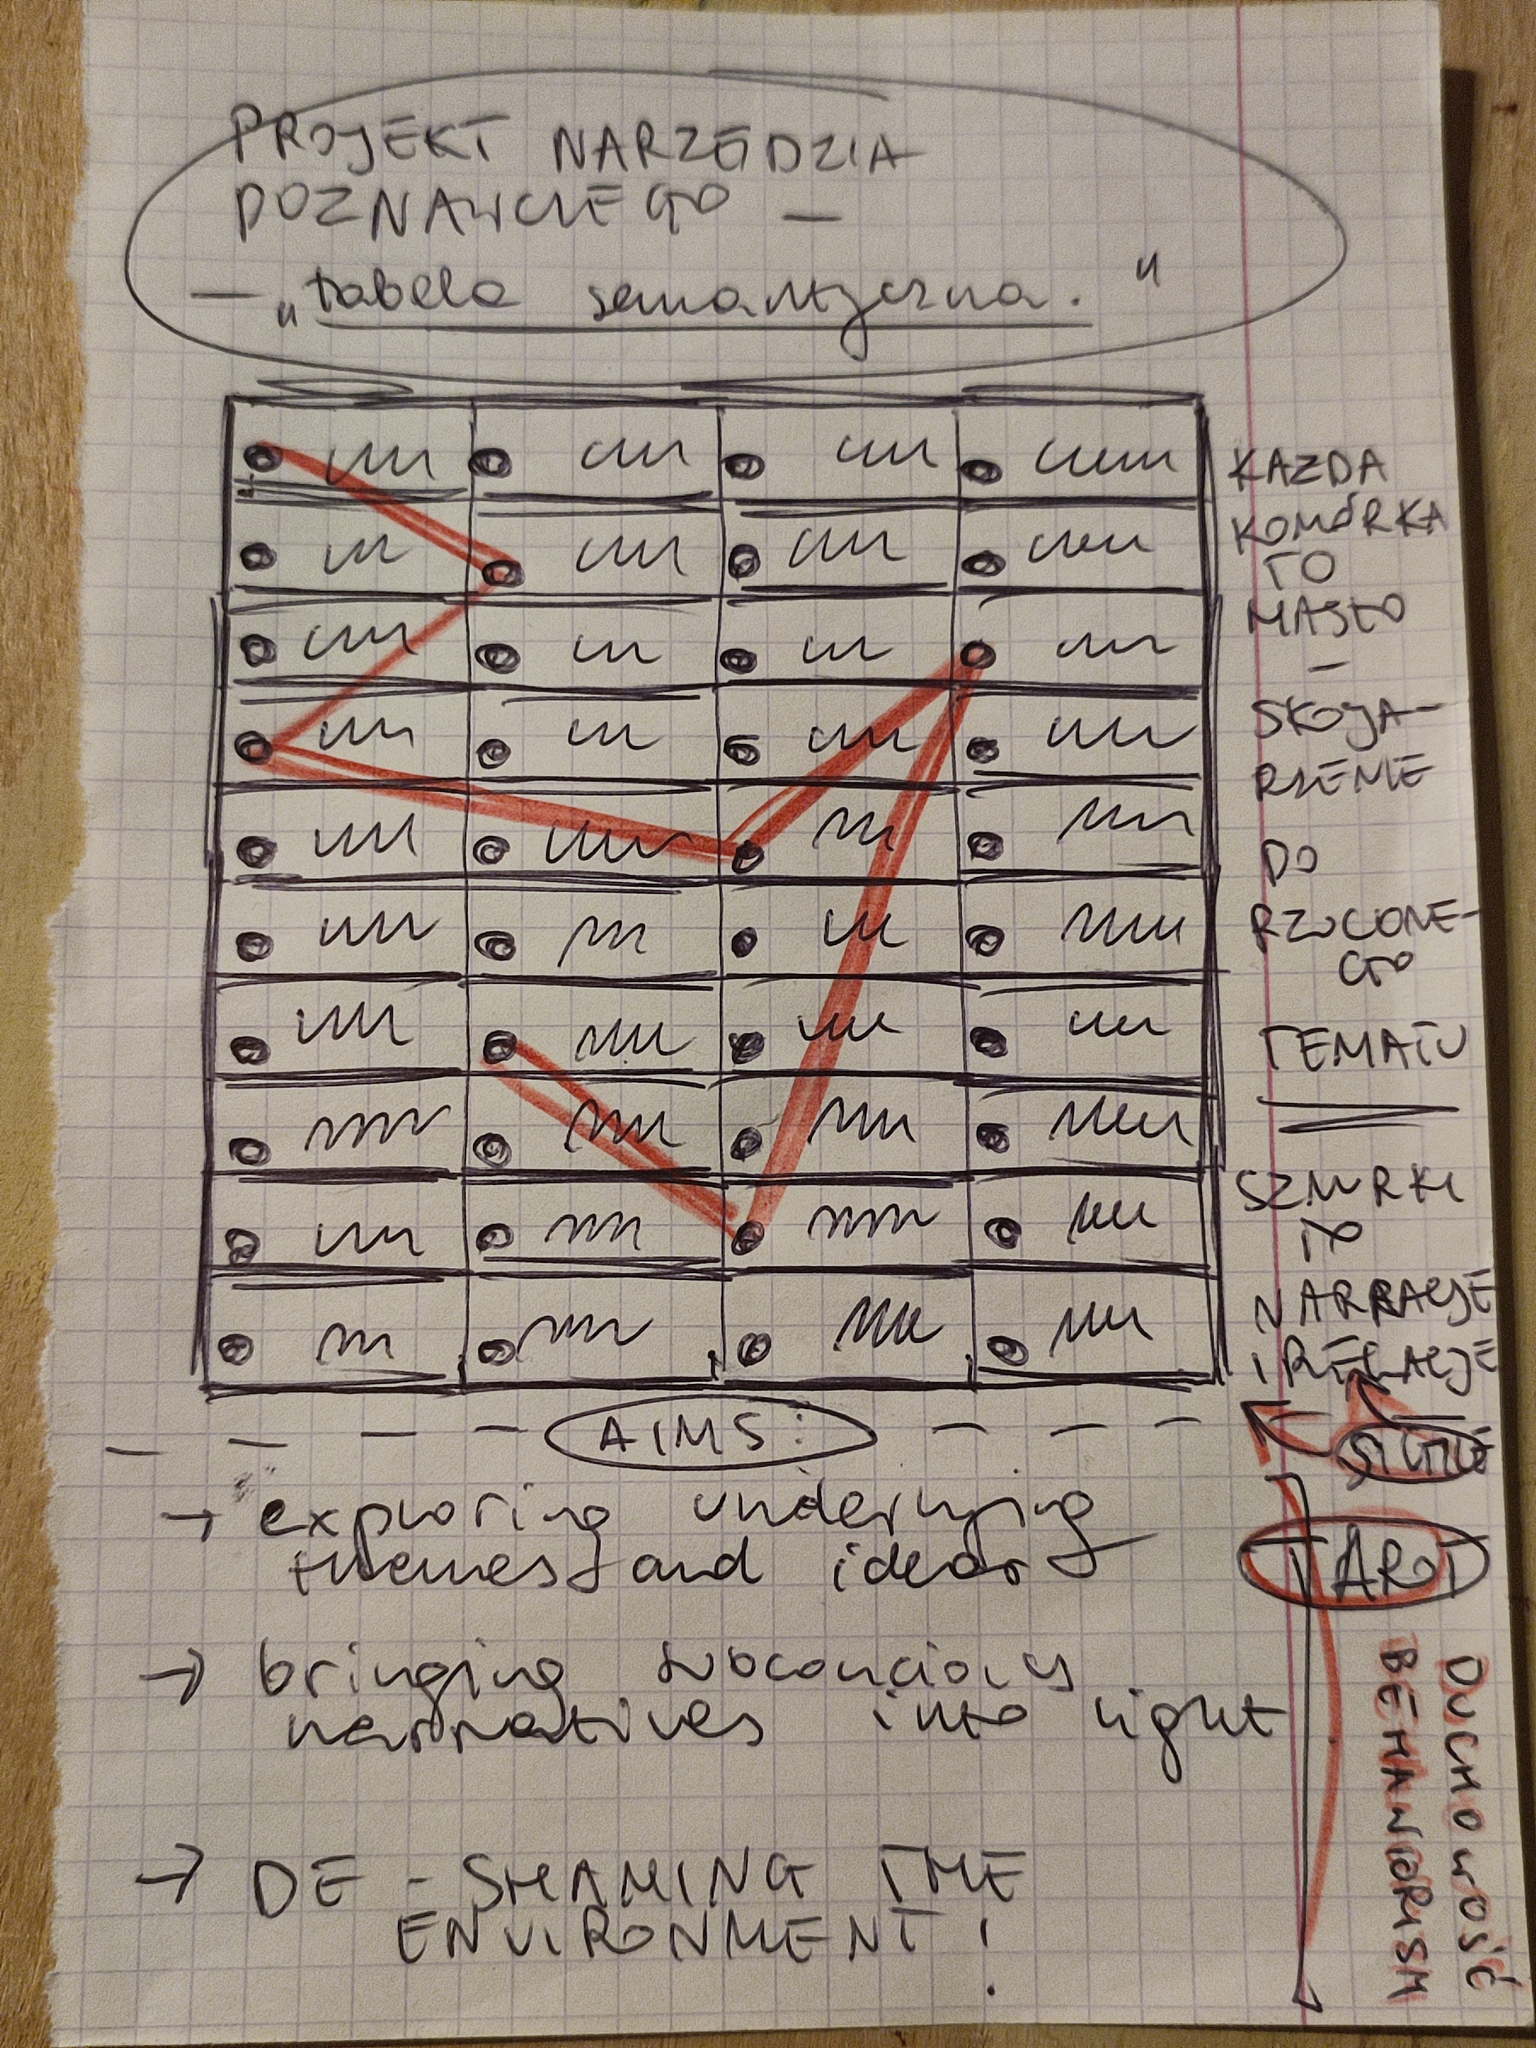 PROJEKT NARZĘDZIA
POZNAWCZEGO —
— „tabela semantyczna."
KAŻDA
KOMÓRKA
TO
HASŁO
—
SKOJA-
RZENIE
DO
RZUCONE-
GO
TEMATU
SZNURKI
TO
NARRACJE
I RELACJE
AIMS:
→ exploring underlying
themes and ideas
→ bringing subconcious
narratives into light
→ DE - SHAMING THE
ENVIRONMENT!
TAROT
DUCHOWOŚĆ
BEHAWIORISM